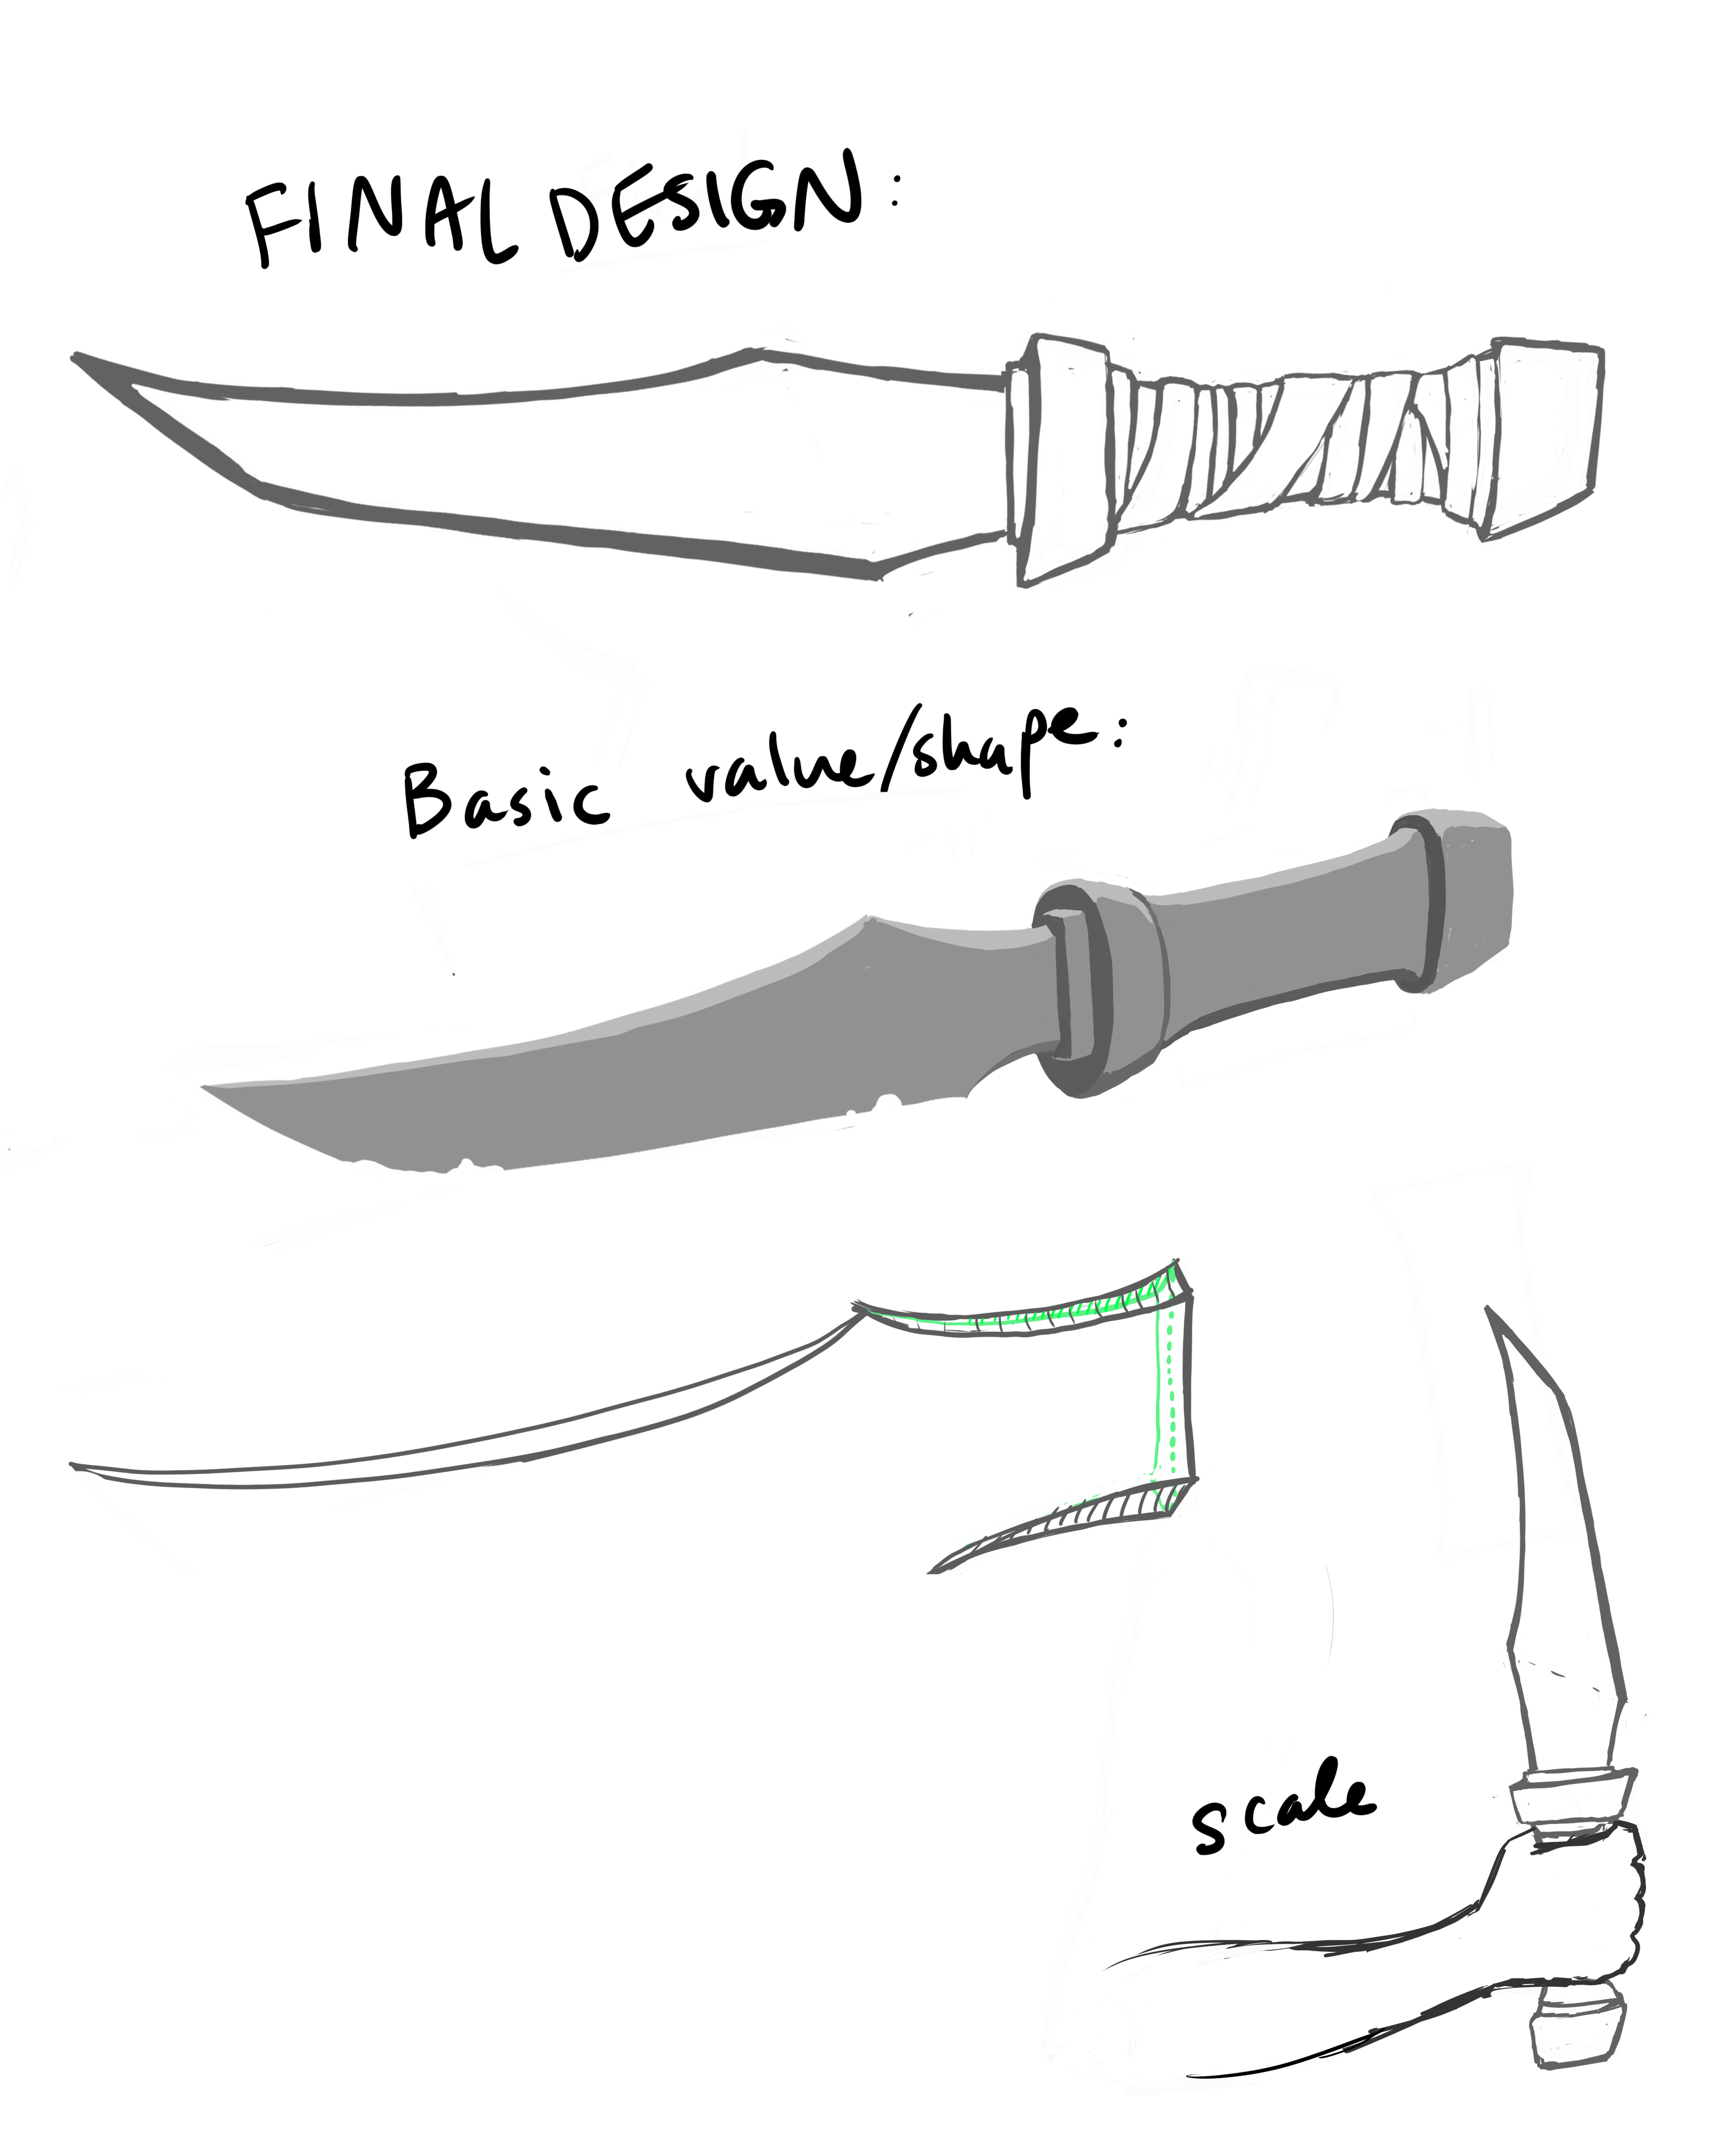 FINAL DESIGN:
Basic value/shape:
scale